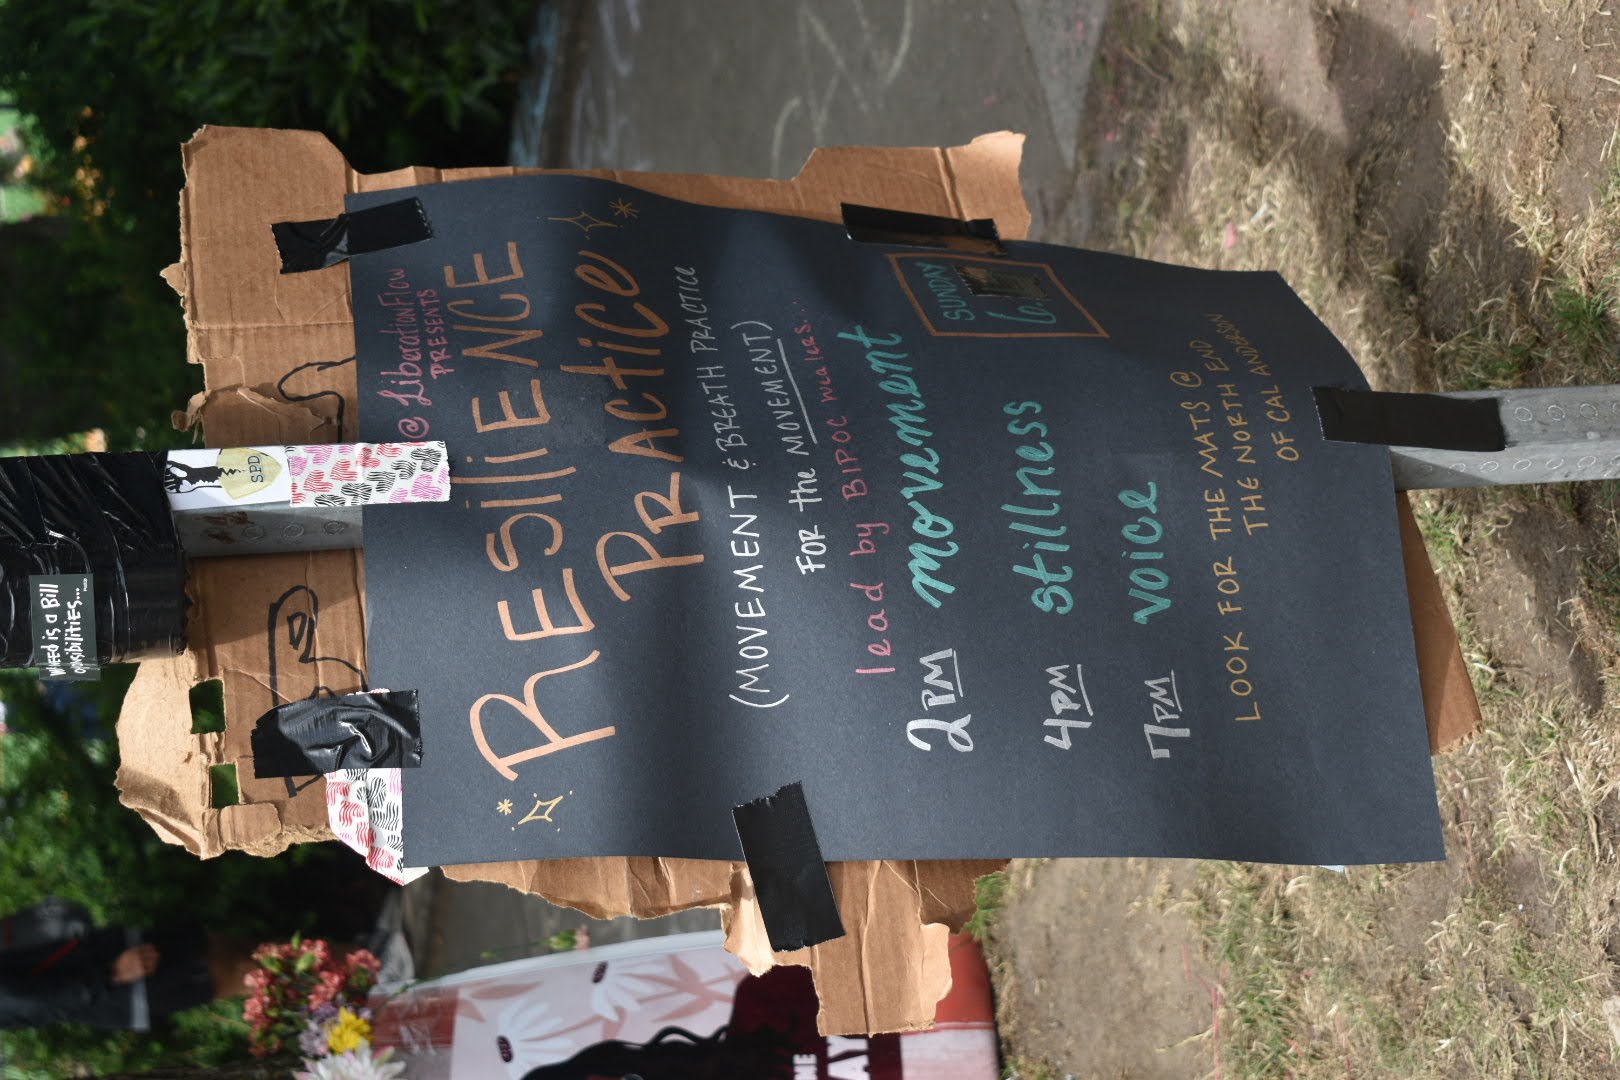 NEED is a Bill
nsibilities...
SPD
@ LiberationFlow
PRESENTS
RESiliENCE
PRACTICE
(MOVEMENT & BREATH PRACTICE
FOR the MOVEMENT)
lead by BIPOC Healers...
2PM movement
SUNDAY
6.
4PM stillness
7PM voice
LOOK FOR THE MATS @
THE NORTH END
OF CAL ANDERSON
ME
AY